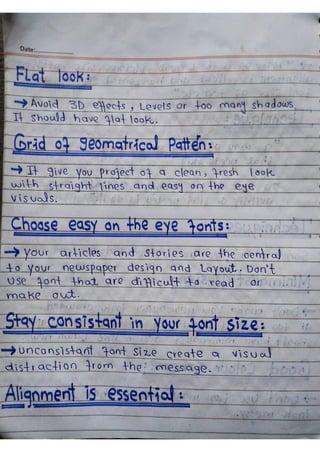 Date:
Flat look:
→ Avoid 3D effects, Levels or too many shadows
It should have flat look.
Grid of geomatrical Patten:
→ It give you project of a clean, fresh look
with straight lines and easy on the eye
visuals.
Choose easy on the eye fonts:
→ your articles and stories are the central
to your newspaper design and Layout. Don't
use font that are difficult to read or
make out.
Stay consistant in your font size:
→ unconsistant font size create a visual
distraction from the message.
Alignment is essential: